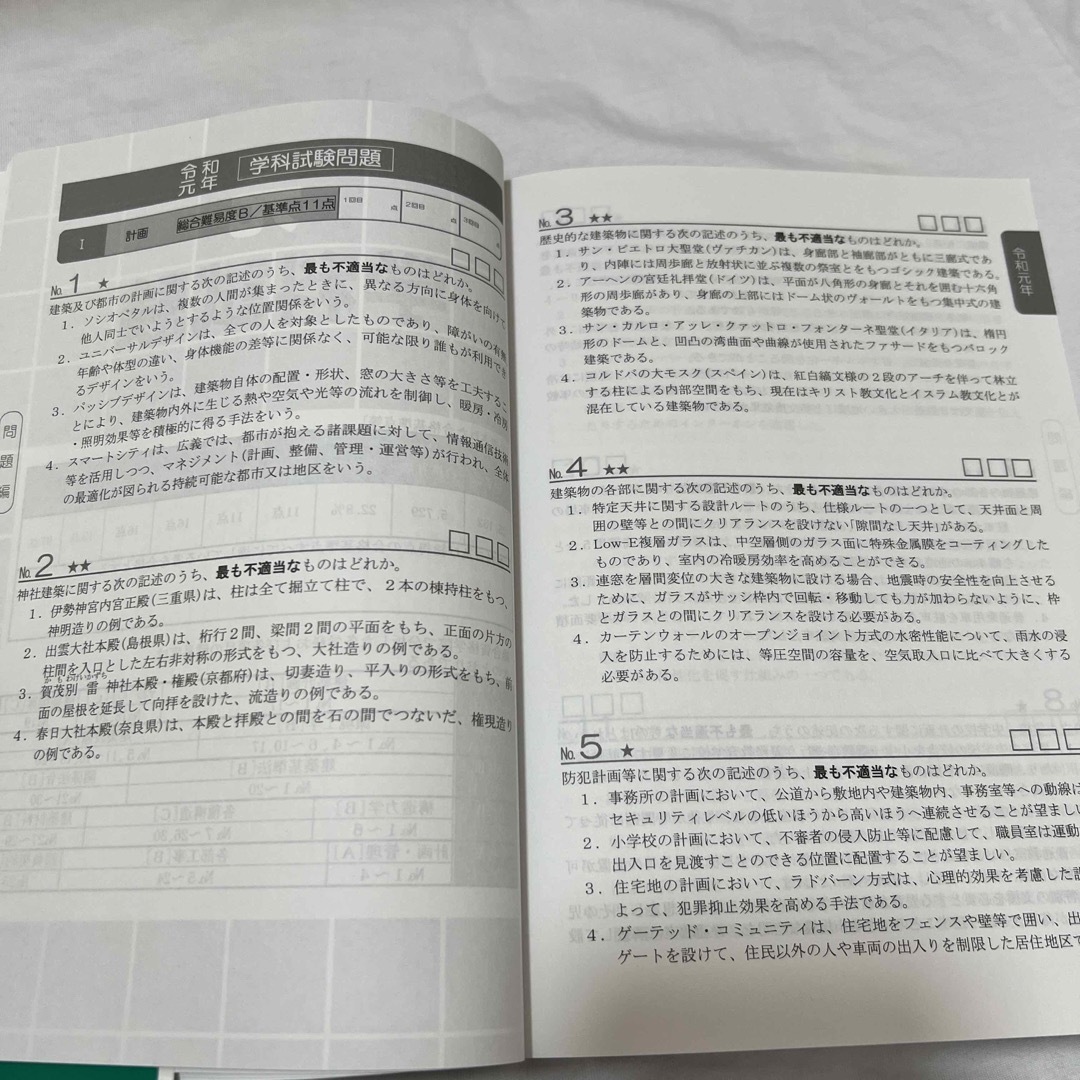 令和元年 学科試験問題
Ⅰ 計画 総合難易度B/基準点11点 1回目 点 2回目 点 3回目 点
問題編
No.1 ★
建築及び都市の計画に関する次の記述のうち、最も不適当なものはどれか。
1．ソシオペタルは、複数の人間が集まったときに、異なる方向に身体を向けて
他人同士でいようとするような位置関係をいう。
2．ユニバーサルデザインは、全ての人を対象としたものであり、障がいの有無、
年齢や体型の違い、身体機能の差等に関係なく、可能な限り誰もが利用でき
るデザインをいう。
3．パッシブデザインは、建築物自体の配置・形状、窓の大きさ等を工夫するこ
とにより、建築物内外に生じる熱や空気や光等の流れを制御し、暖房・冷房
・照明効果等を積極的に得る手法をいう。
4．スマートシティは、広義では、都市が抱える諸課題に対して、情報通信技術
等を活用しつつ、マネジメント(計画、整備、管理・運営等)が行われ、全体
の最適化が図られる持続可能な都市又は地区をいう。
No.2 ★★
神社建築に関する次の記述のうち、最も不適当なものはどれか。
1．伊勢神宮内宮正殿(三重県)は、柱は全て掘立て柱で、2本の棟持柱をもつ、
神明造りの例である。
2．出雲大社本殿(島根県)は、桁行2間、梁間2間の平面をもち、正面の片方の
柱間を入口とした左右非対称の形式をもつ、大社造りの例である。
かもわけいかずち
3．賀茂別雷神社本殿・権殿(京都府)は、切妻造り、平入りの形式をもち、前
面の屋根を延長して向拝を設けた、流造りの例である。
4．春日大社本殿(奈良県)は、本殿と拝殿との間を石の間でつないだ、権現造り
の例である。
No.3 ★★
歴史的な建築物に関する次の記述のうち、最も不適当なものはどれか。
1．サン・ピエトロ大聖堂(ヴァチカン)は、身廊部と袖廊部がともに三廊式であ
り、内陣には周歩廊と放射状に並ぶ複数の祭室とをもつゴシック建築である。
2．アーヘンの宮廷礼拝堂(ドイツ)は、平面が八角形の身廊とそれを囲む十六角
形の周歩廊があり、身廊の上部にはドーム状のヴォールトをもつ集中式の建
築物である。
3．サン・カルロ・アッレ・クァットロ・フォンターネ聖堂(イタリア)は、楕円
形のドームと、凹凸の湾曲面や曲線が使用されたファサードをもつバロック
建築である。
4．コルドバの大モスク(スペイン)は、紅白縞文様の2段のアーチを伴って林立
する柱による内部空間をもち、現在はキリスト教文化とイスラム教文化とが
混在している建築物である。
令和元年
No.4 ★★
建築物の各部に関する次の記述のうち、最も不適当なものはどれか。
1．特定天井に関する設計ルートのうち、仕様ルートの一つとして、天井面と周
囲の壁等との間にクリアランスを設けない「隙間なし天井」がある。
2．Low-E複層ガラスは、中空層側のガラス面に特殊金属膜をコーティングした
ものであり、室内の冷暖房効率を高めることができる。
3．連窓を層間変位の大きな建築物に設ける場合、地震時の安全性を向上させる
ために、ガラスがサッシ枠内で回転・移動しても力が加わらないように、枠
とガラスとの間にクリアランスを設ける必要がある。
4．カーテンウォールのオープンジョイント方式の水密性能について、雨水の浸
入を防止するためには、等圧空間の容量を、空気取入口に比べて大きくする
必要がある。
No.5 ★
防犯計画等に関する次の記述のうち、最も不適当なものはどれか。
1．事務所の計画において、公道から敷地内や建築物内、事務室等への動線は
セキュリティレベルの低いほうから高いほうへ連続させることが望まし
2．小学校の計画において、不審者の侵入防止等に配慮して、職員室は運動
出入口を見渡すことのできる位置に配置することが望ましい。
3．住宅地の計画において、ラドバーン方式は、心理的効果を考慮した設
よって、犯罪抑止効果を高める手法である。
4．ゲーテッド・コミュニティは、住宅地をフェンスや壁等で囲い、出
ゲートを設けて、住民以外の人や車両の出入りを制限した居住地区で